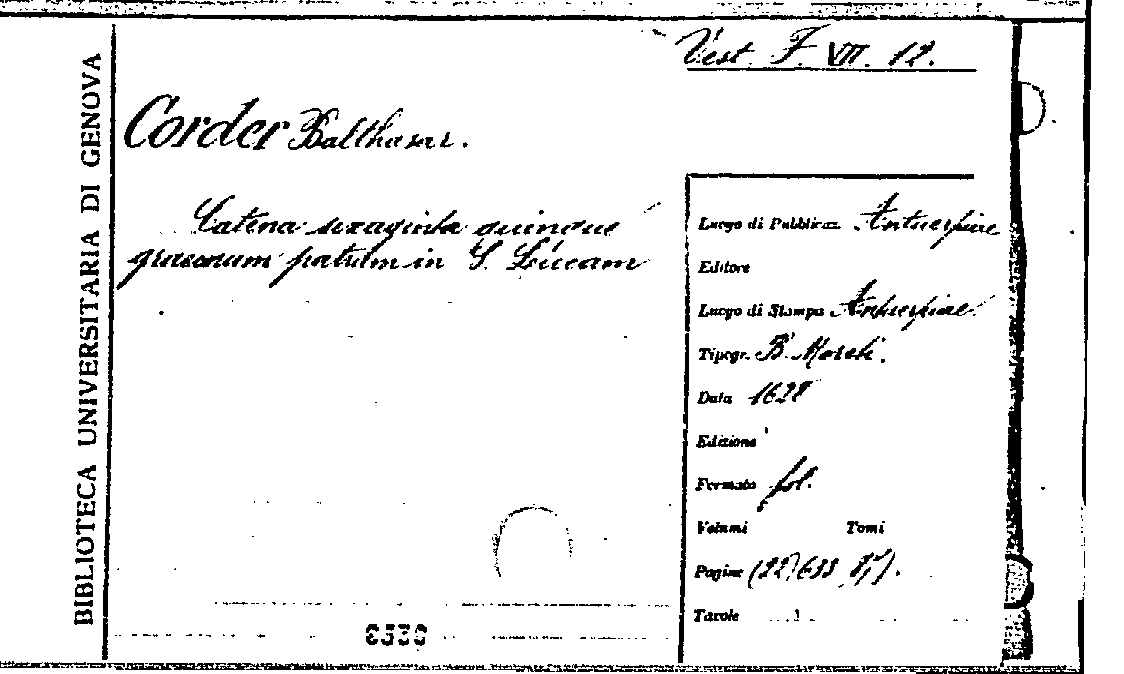 Vest. F. VII. 12.
BIBLIOTECA UNIVERSITARIA DI GENOVA
Corder Balthasar.
Catena sexaginta quinque
graecorum patrum in S. Lucam
Luogo di Pubblicaz. Antuerpiae
Editore
Luogo di Stampa Antuerpiae
Tipogr. B. Moreti.
Data 1628
Edizione
Formato fol.
Volumi Tomi
Pagine (22) 633
Tavole